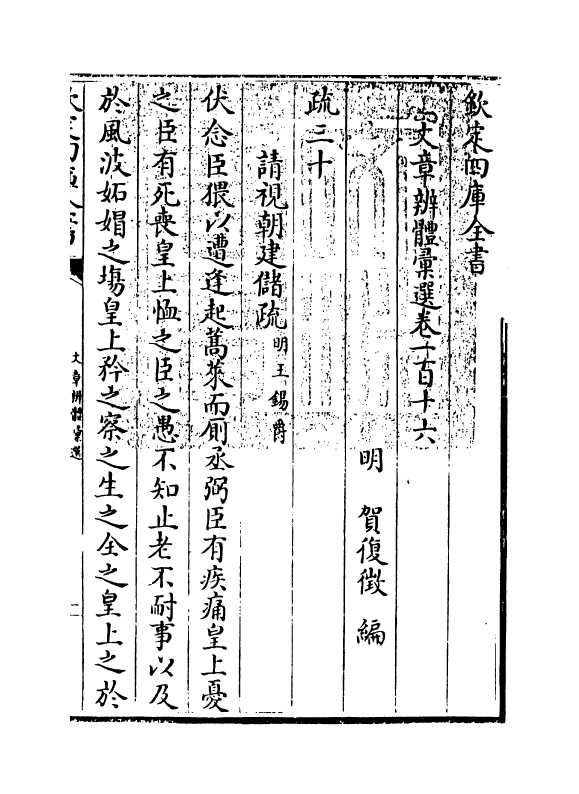 欽定四庫全書
文章辨體彚選卷一百十六
明　賀復徵　編
疏三十
請視朝建儲疏明王錫爵
伏念臣猥以遭逢起蒿萊而厠丞弼臣有疾痛皇上憂
之臣有死喪皇上恤之臣之愚不知止老不耐事以及
於風波妬媢之塲皇上矜之察之生之全之皇上之於
文章辨體彚選